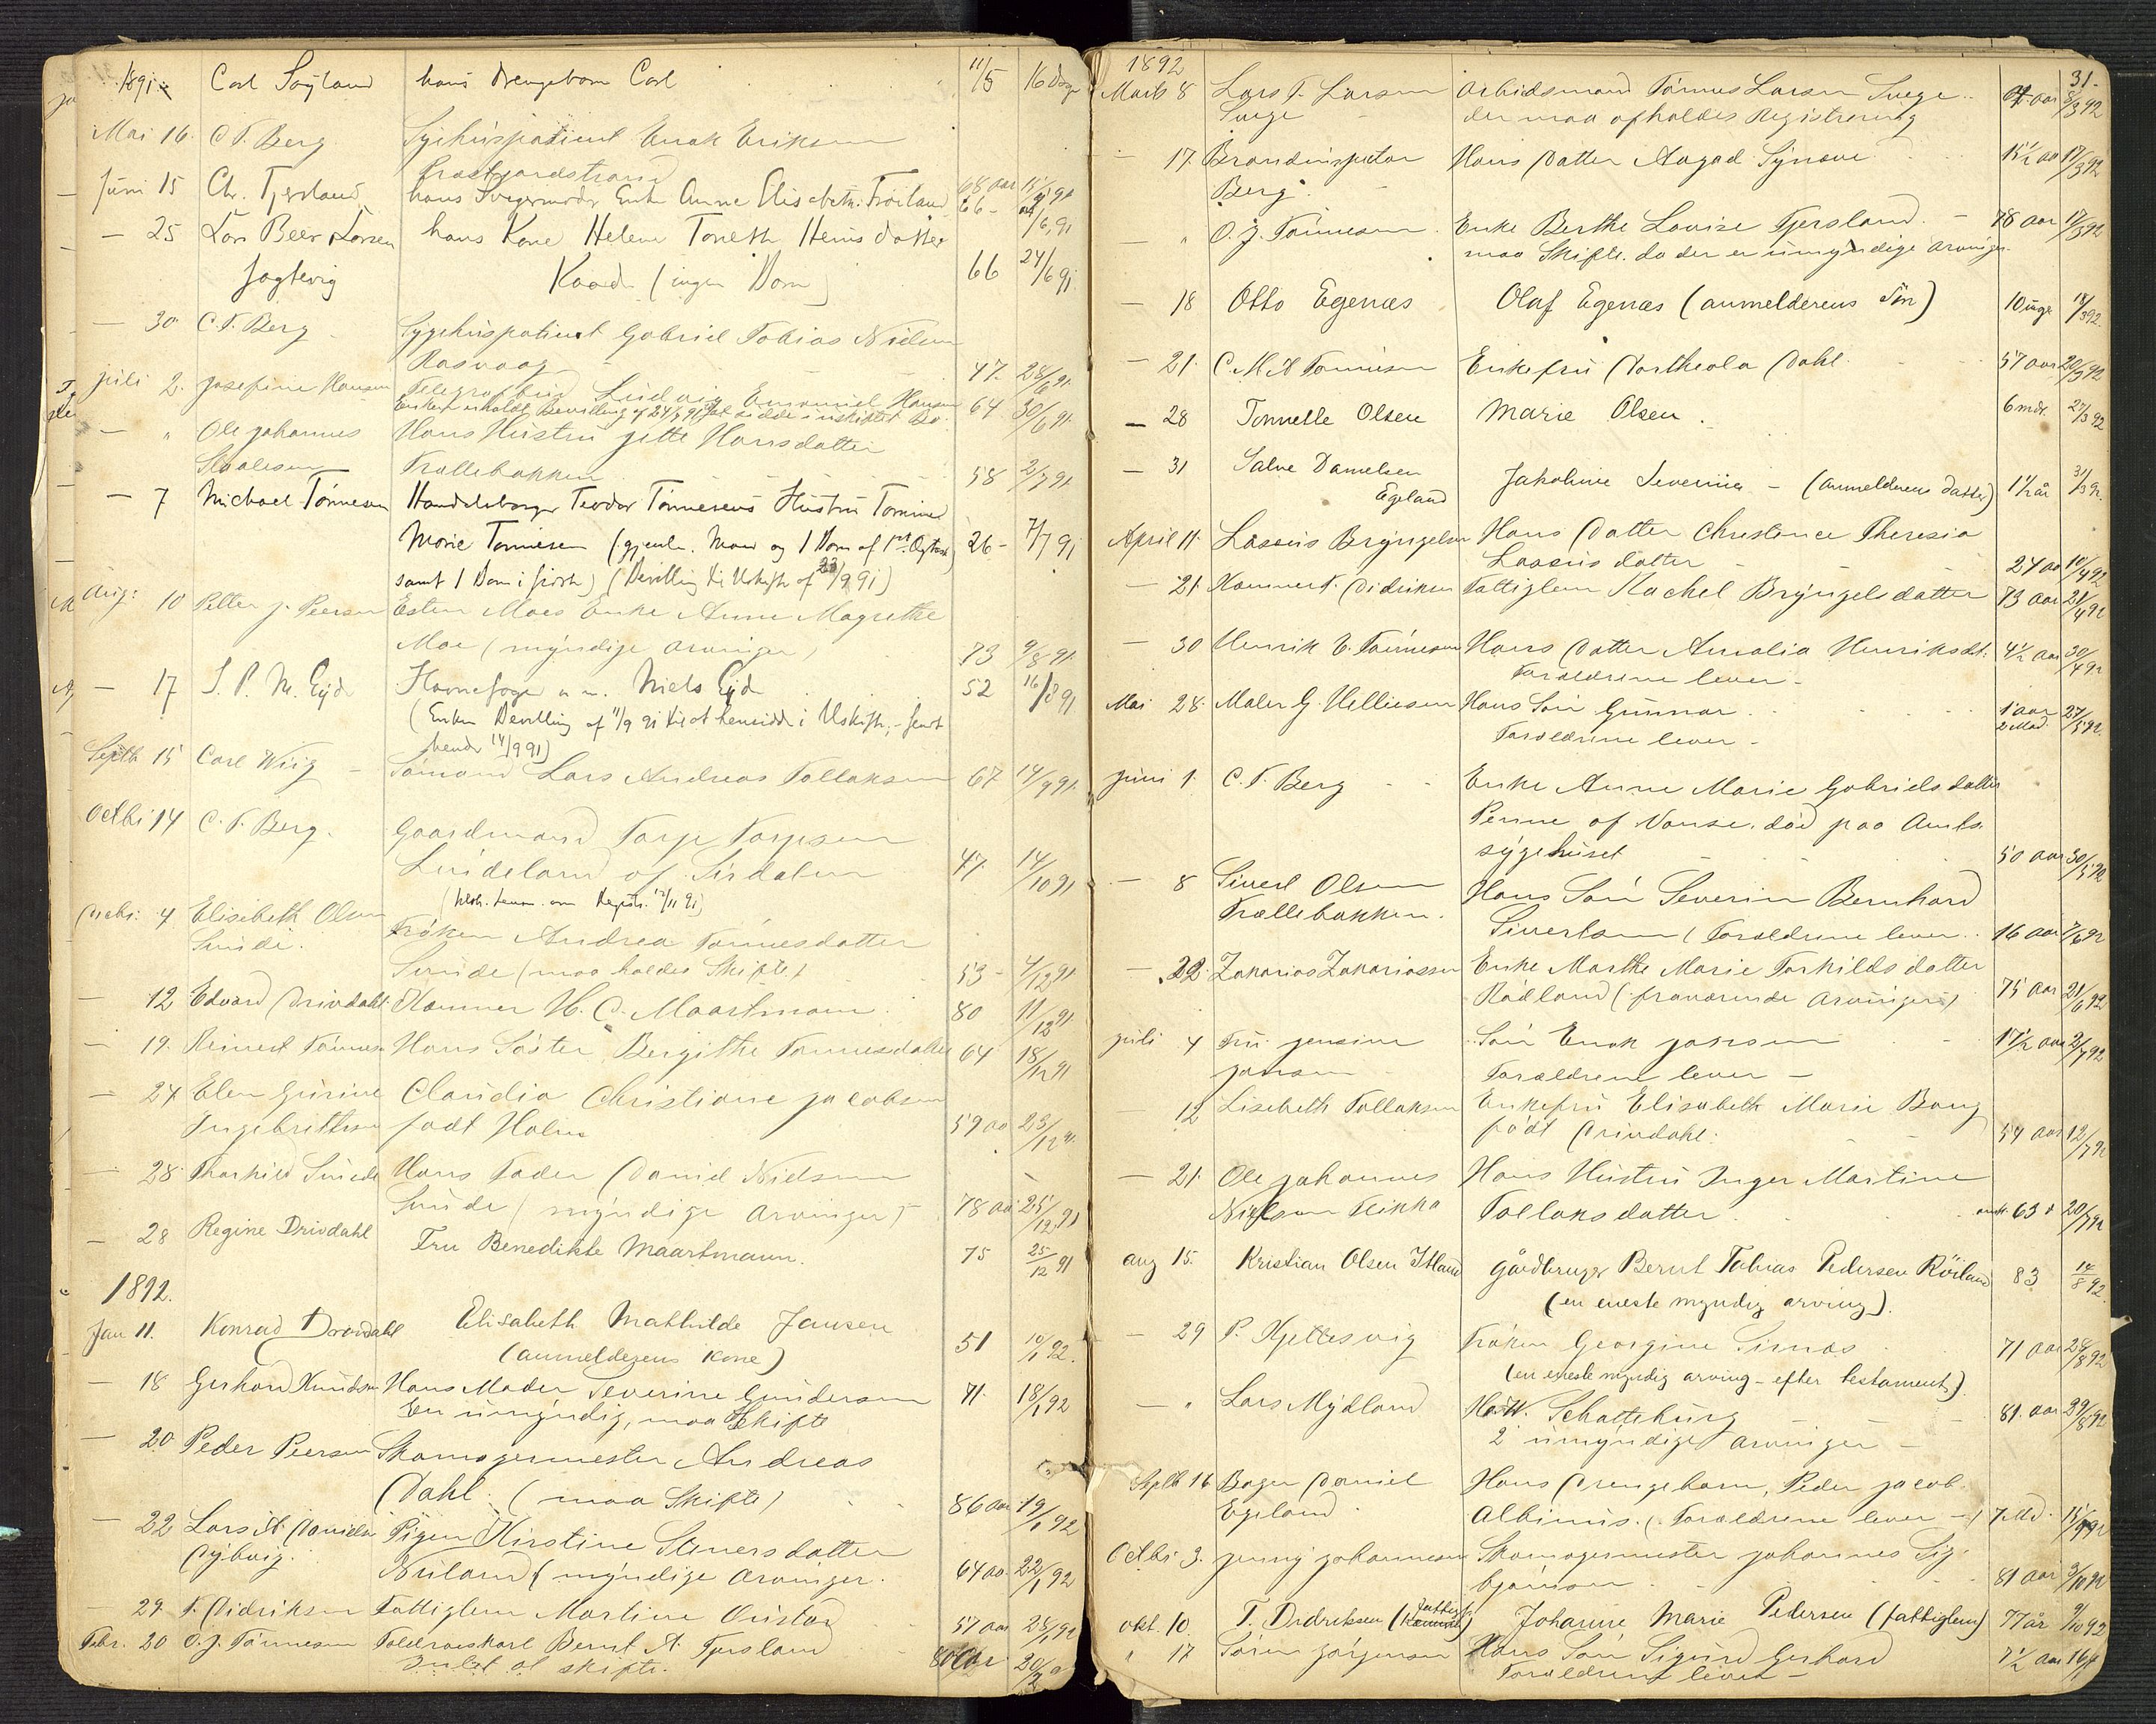 1891
Carl Søyland hans Drengebarn Carl 11/5 16 Dage
Mai 16. C. F. Berg Sygehuspatient Enok Eriksen
Præstgaardstrand 68 aar 15/5 91
Juni 15 Chr. Tjersland hans Svigermoder Enke Anne Elisabeth Frøiland 66 - /6 91
— 25 Lars Beer Larsen hans Kone Helene Toneth Henisdatter
Jogtevig Kaade (ingen Barn) 66 24/6 91
— 30 C. F. Berg Sygehuspatient Gabriel Tobias Nielsen
Rasvaag 47. 28/6 91.
Juli 2. Josefine Hansen Telegrafbud Ludvig Emanuel Hansen 64 30/6 91.
Enken erholdt Bevilling af 24/7 91 at sidde i uskiftet Bo.
— " Ole Johannes Hans Hustru Jette Hansdatter
Staalesen Trællebakken 58 2/7 91.
— 7 Michael Tønnesen Handelsborger Teodor Tønnesens Hustru Tomine
Marie Tønnesen (gjenlv. Mand og 1 Barn af 1ste Ægtesk 26 - 7/7 91
samt 1 Barn i sidste) (Bevilling til Uskifte af 23/9 91)
Aug: 10 Petter J. Peersen Esten Moes Enke Anne Magrethe
Moe (myndige Arvinger) 73 9/8 91.
— 17 S. P. M. Eyde Havnefoged m. m. Niels Eyde 52 16/8 91
(Enken Bevilling af 11/9 91 til at hensidde i Uskifte, - sendt
hende 14/9 91)
Septb 15 Carl Wiig Sømand Lars Andreas Tollaksen 67 14/9 91.
Octbr 14 C. F. Berg. Gaardmand Tarje Tarjesen
Lindeland af Sirdalen 47. 14/10 91
Decbr. 4 Elisabeth Olsen Frøken Andrea Tønnesdatter
Sunde. Sunde (maa holdes Skifte) 53 - 4/12 91.
— 12 Edvard Drivdahl Kæmner H. C. Maartmann. 80 11/12 91.
— 19. Reinert Tønnesen Hans Søster Bergithe Tønnesdatter 64 18/12 91
— 24 Elen Gurine Claudia Christiane Jacobsen
Ingebrethsen født Holm 59 aar 23/12 91.
— 28. Tharkild Sunde Hans Fader Daniel Nielsen
Sunde (myndige Arvinger) 78 aar 25/12 91
— 28 Regine Drivdahl Fru Benedikte Maartmann. 75 25/12 91
1892.
Jan 11. Konrad Drivdahl Elisabeth Mathilde Jansen
(anmelderens Kone) 51 10/1 92.
— 18 Gerhard Knudsen Hans Moder Severine Gundersen 71. 18/1 92
En umyndig, maa Skifte
— 20 Peder Peersen Skomagermester Andreas
Dahl. (maa Skifte) 86 aar 19/1 92
— 22 Lars A. Danielsen Pigen Kirstine Steversdatter
Dybvig. Nuland (myndige Arvinger. 64 aar. 22/1 92
— 29. T. Didriksen Fattiglem Martine Ørstad 57 aar 28/1 92
Febr. 20 O. J. Tønnesen Toldroerskarl Bernt A. Tjersland
Intet at skifte. 80 aar 20/2 92
1892 31.
Marts 8 Lars T. Larsen Arbeidsmand Tønnes Larsen Svege aar 8/3 92
Svege der maa afholdes Registrering
— 17. Brandinspektør Hans Datter Aagod Synøve 15 1/2 aar 17/3 92
Berg.
— " O. J. Tønnesen. Enke Berthe Lovise Tjersland. 78 aar 17/3 92
maa Skifte. da der er umyndige Arvinger.
— 18 Otto Egenæs Olaf Egenæs (anmelderens Søn) 10 uger 18/3 92.
— 21. C. M. S Tønnesen Enkefru Dortheola Dahl. 57 aar 20/3 92
— 28 Tonnelle Olsen Marie Olsen. 6 mdr. 27/3 92
— 31 Salve Danielsen
Egeland Jakobine Severine - (anmelderens datter) 1 1/2 år 31/3 92.
April 11. Lassius Bryngelsen Hans Datter Christence Theresia
Lassiusdatter 24 aar 10/4 92
— 21. Kæmner T. Didriksen Fattiglem Rachel Bryngelsdatter 73 aar 21/4 92
— 30 Henrik E. Tønnesen Hans Datter Amalia Henriksdt. 4 1/2 aar 30/4 92
Forældrene lever -
Mai 28. Maler G. Helliesen Hans Søn Gunnar. 1 aar 2 Mad. 27/5 92.
Forældrene lever -
Juni 1. C. F. Berg Enke Anne Marie Gabrielsdatter
Penne af Vanse. død paa Amts-
sygehuset 50 aar 30/5 92
— 8 Sivert Olsen Hans Søn Severin Bernhard
Trællebakken. Sivertsen (Forældrene lever. 16 aar 7/6 92
— 22. Zakarias Zakariassen Enke Marthe Marie Torkildsdatter
Rødland (fraværende Arvinger) 75 aar 21/6 92
Juli 4 Fru Jensine Søn Enok Jansen 17 1/2 aar 2/7 92
Jansen Forældrene lever —
— 12 Lisebeth Tollaksen Enkefru Elisabeth Marie Bang
født Drivdahl. 54 aar 12/7 92
— 21. Ole Johannes Hans Hustru Inger Martine
Nielsen Flikka Tollaksdatter. 63 20/7 92
Aug 15. Kristian Olsen Itland gårdbruger Bernt Tobias Pedersen Røiland 83 14/8 92.
(en eneste myndig arving).
— 29 P. Kjellesvig Frøken Georgine Sirnæs 71 aar 28/8 92
(en eneste myndig arving - efter testament).
— " Lars Mydland H. W. Schatteburg 81. aar 29/8 92
2 umyndige Arvinger —
Septb 16 Bager Daniel Hans Drengebarn, Peder Jacob
Egeland. Albinus. (Forældrene lever —) 7 Md. 15/9 92
Octbr 3. Jenny Johannesen Skomagermester Johannes Sig-
bjørnsen 81 aar 3/10 92
okt. 10. T. Didriksen (Kæmner) Johanne Marie Pedersen (fattiglem) 77 år 9/10 92
" 17 Søren Jørgensen Hans Søn Sigurd Gerhard 7 1/2 aar 16/
Forældrene lever —